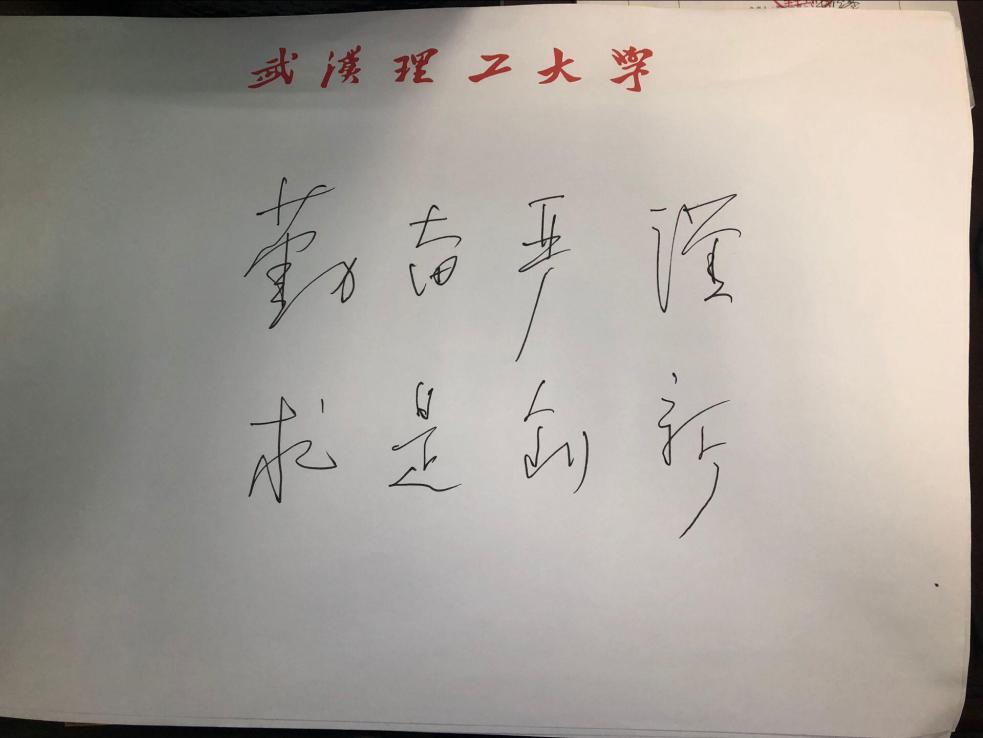 武漢理工大學
勤奋严谨
求是创新